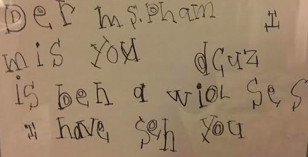 Der ms. Pham I
mis you dcuz
is beh a wiol ses
I have seh you